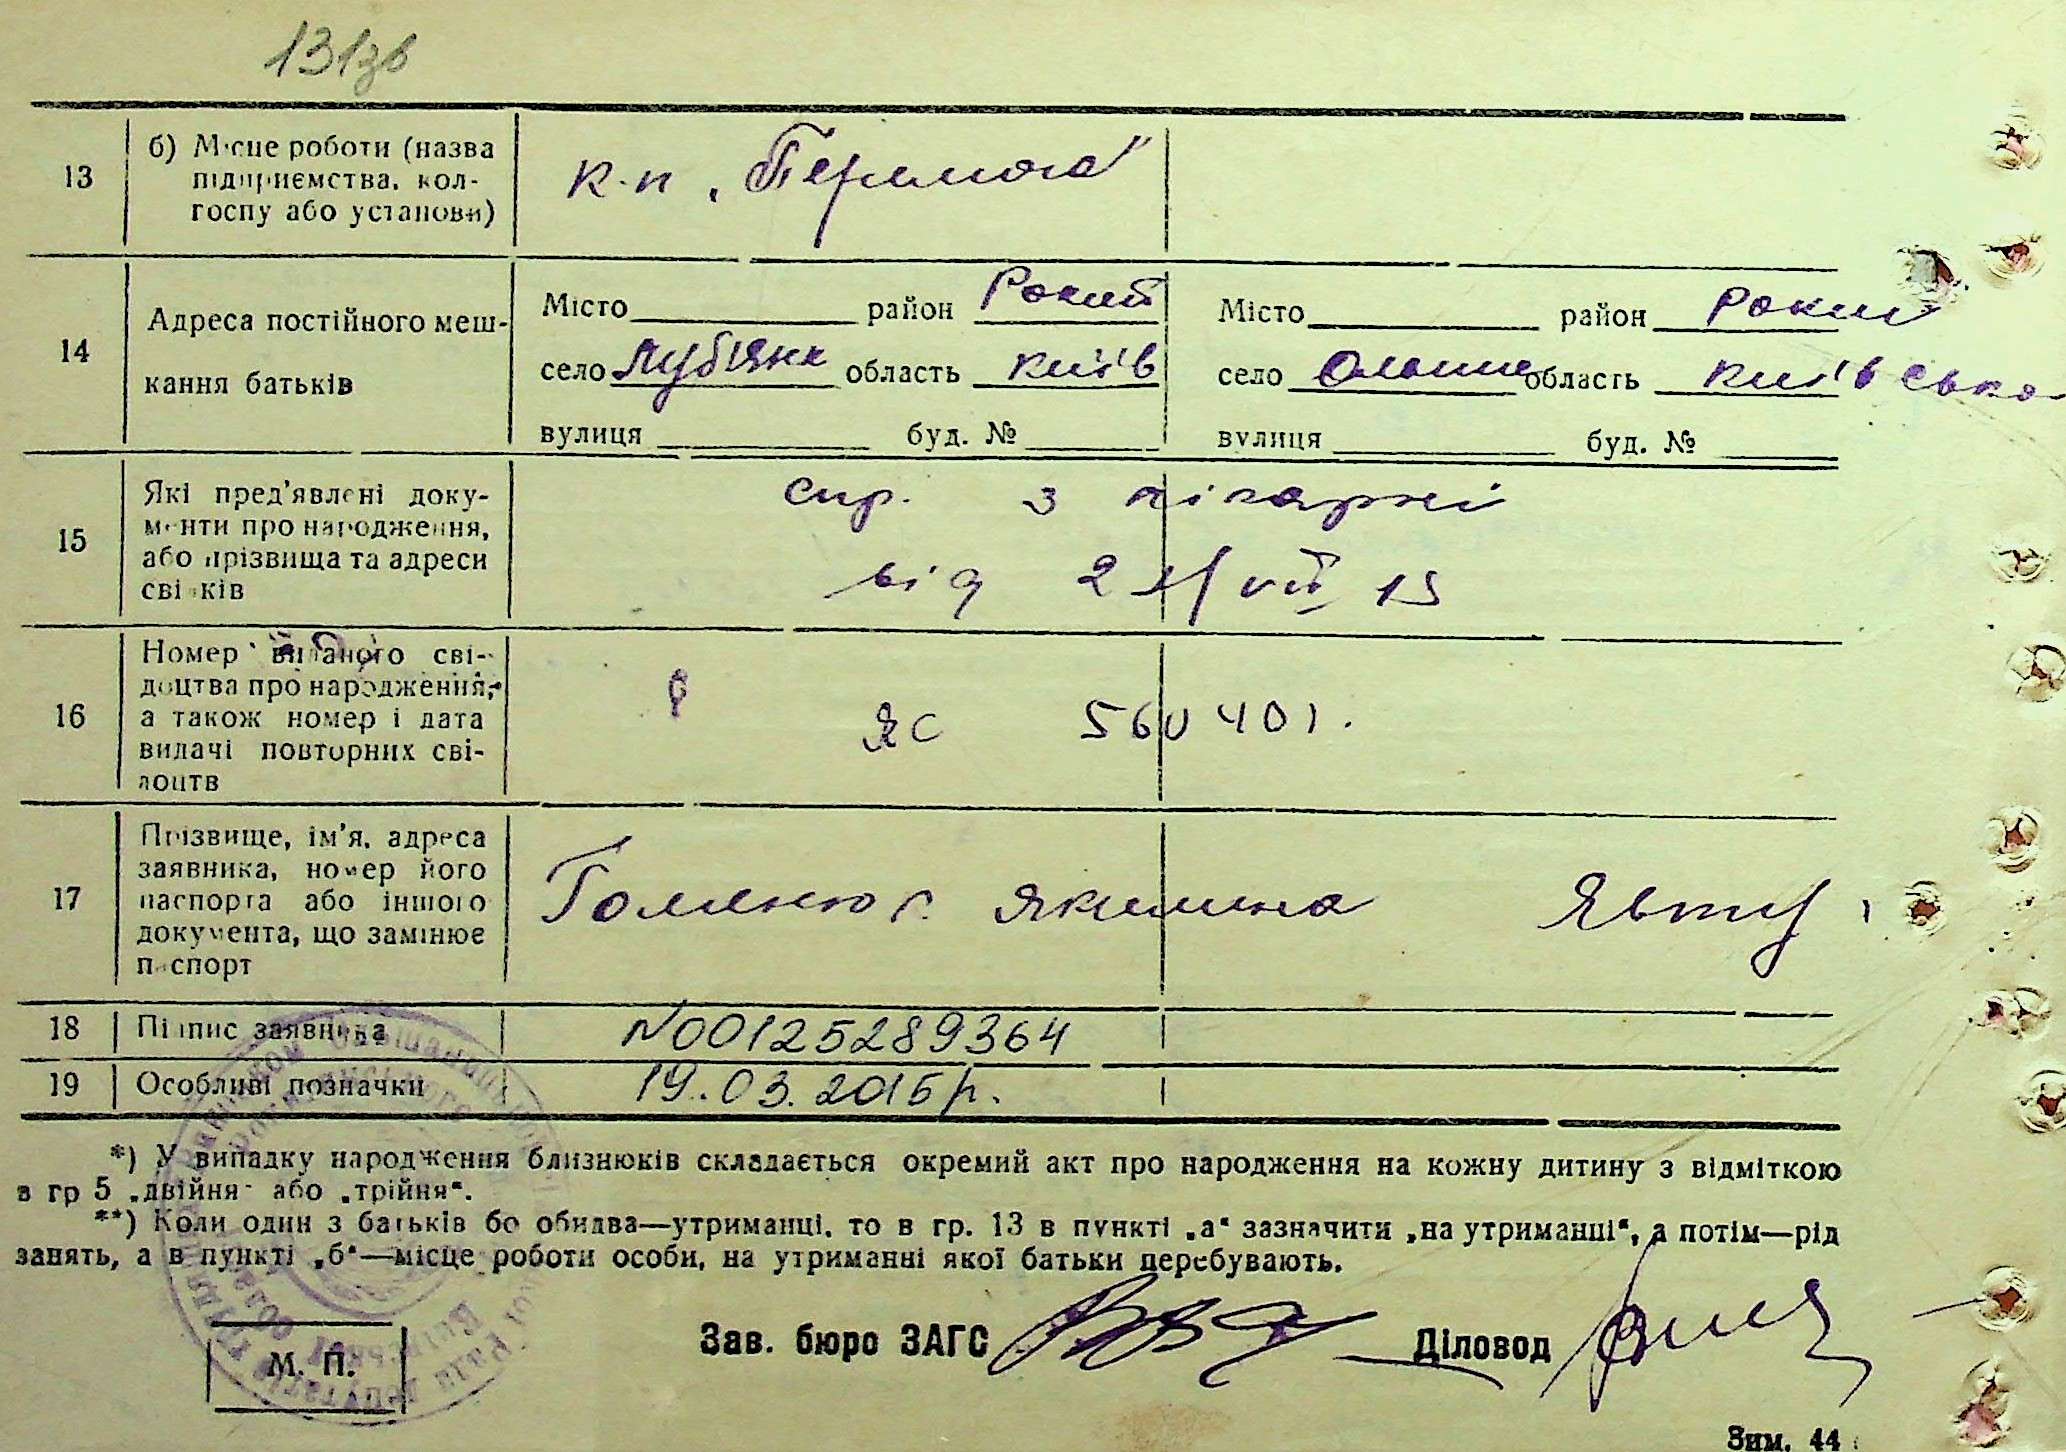 131зв
13
б) Місце роботи (назва
підприємства, кол-
госпу або установи)
к-п „Перемога"
14
Адреса постійного меш-
кання батьків
Місто район Рокит
село Луб'янк область Київ
вулиця буд. №
Місто район Рокит
село область Київська
вулиця буд. №
15
Які пред'явлені доку-
менти про народження,
або прізвища та адреси
свідків
спр. з лікарні
від
16
Номер виданого сві-
доцтва про народження,
а також номер і дата
видачі повторних сві-
доцтв
ЯС 560401.
17
Прізвище, ім'я, адреса
заявника, номер його
паспорта або іншого
документа, що замінює
паспорт
Якилина Явту
18
Підпис заявника
N00125289364
19
Особливі позначки
19.03.2015р.
*) У випадку народження близнюків складається окремий акт про народження на кожну дитину з відміткою
в гр 5 „двійня" або „трійня".
**) Коли один з батьків бо обидва—утриманці, то в гр. 13 в пункті „а" зазначити „на утриманці", а потім—рід
занять, а в пункті „б"—місце роботи особи, на утриманні якої батьки перебувають.
Зав. бюро ЗАГС Діловод
М. П.
Зим. 44